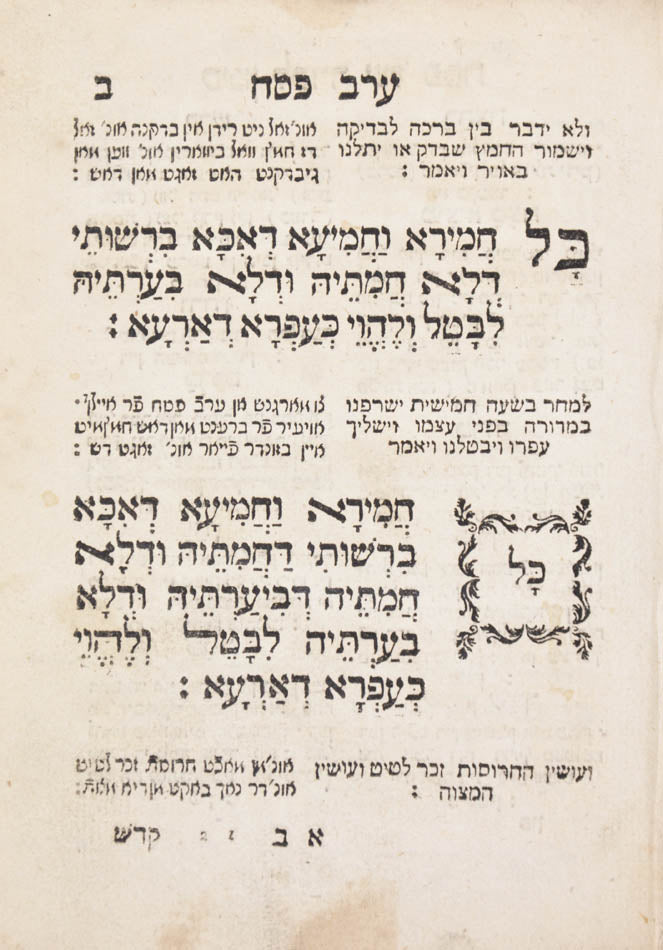 ערב פסח ב
ולא ידבר בין ברכה לבדיקה
וישמור החמץ שבדק או יתלנו
באויר ויאמר :
אונ' זאל ניט רידן אין בדקנה אונ' זאל
דז חמץ וואל ביווארין אונ' ווען מאן
גיבדקנט האט זאגט מאן דאש :
כָּל חֲמִירָא וַחֲמִיעָא דְאִכָּא בִרְשׁוּתִי
דְלָא חֲמִתֵּיהּ וּדְלָא בִעַרְתֵּיהּ
לִבָּטֵל וְלֶהֱוֵי כְּעַפְרָא דְאַרְעָא :
למחר בשעה חמישית ישרפנו
במדורה בפני עצמו וישליך
עפרו ויבטלנו ויאמר
צו מארגנט אן ערב פסח פר
פר ברענט מאן דאש חמץ מיט
איין באנדר פייאר אונ' זאגט דש :
כָּל חֲמִירָא וַחֲמִיעָא דְּאִכָּא
בִרְשׁוּתִי דַּחֲמִתֵּיהּ וּדְלָא
חֲמִתֵּיהּ דְּבִיעַרְתֵּיהּ וּדְלָא
בִעַרְתֵּיהּ לִבָּטֵל וְלֶהֱוֵי
כְּעַפְרָא דְאַרְעָא :
ועושין החרוסות זכר לטיט ועושין
המצוה :
אונ' מן מאכט חרוסת זכר לטיט
אונ' דר נאך באקט מן דיא
א ב קדש